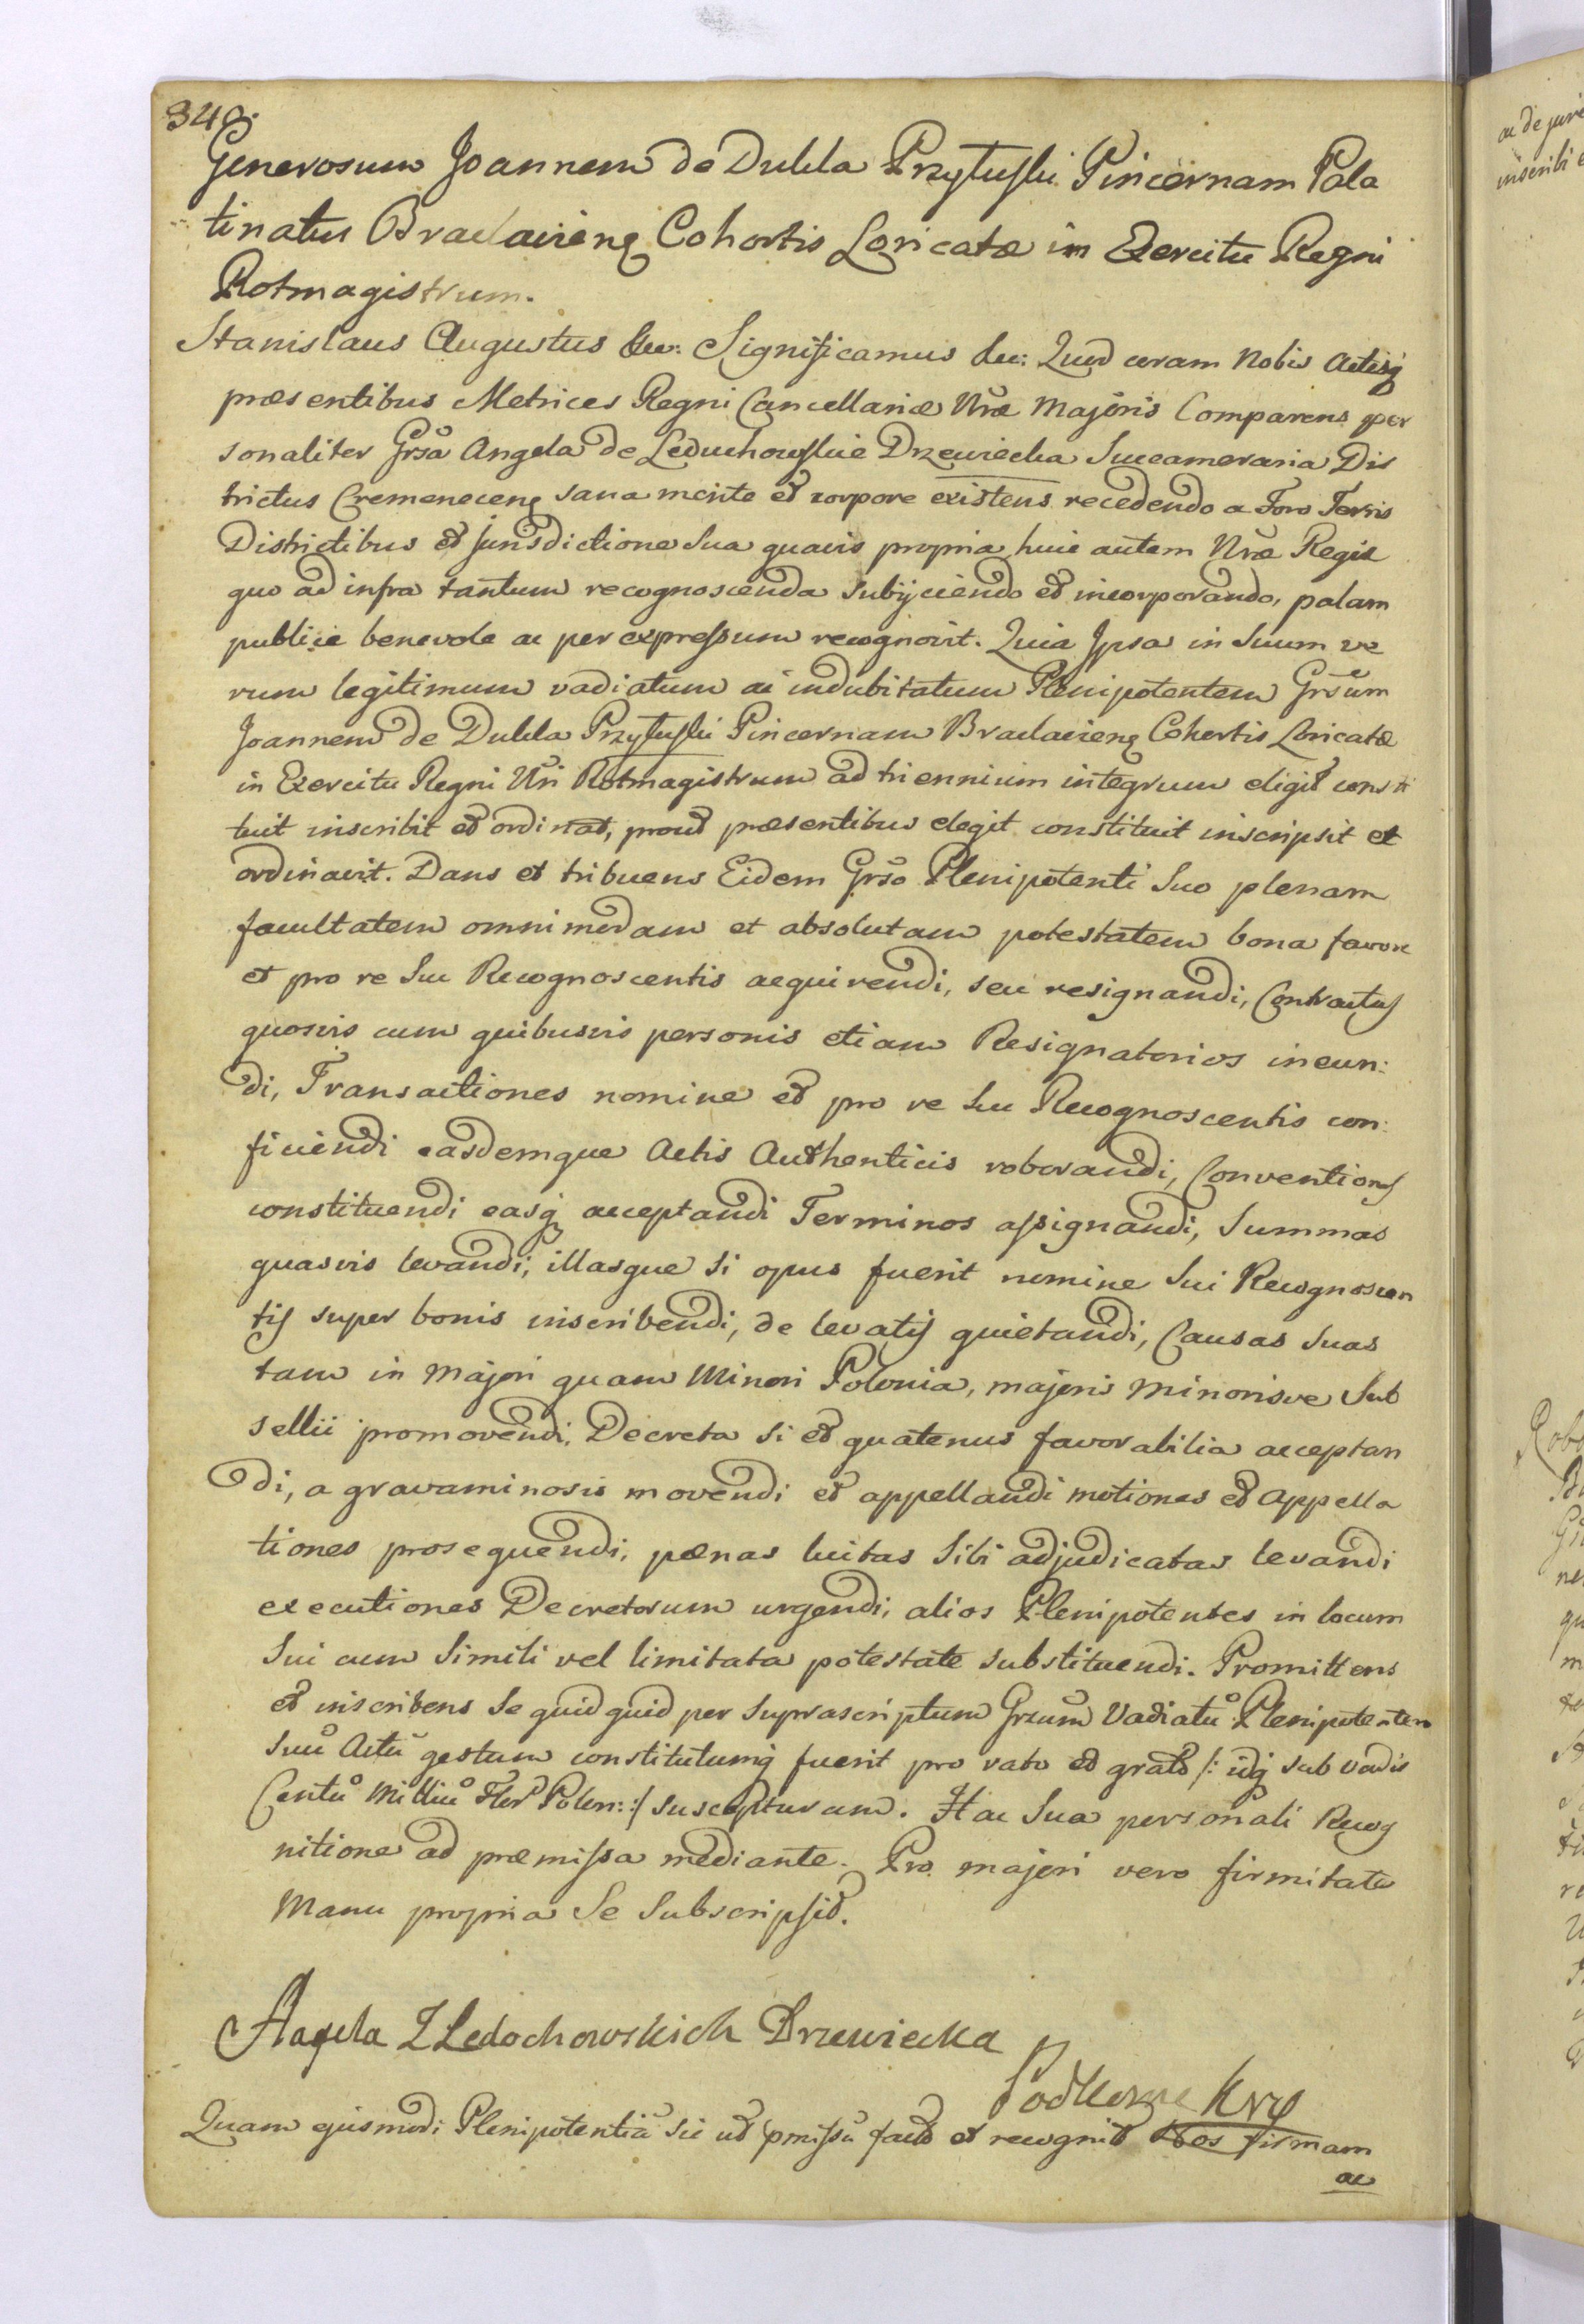 340.
Generosum Joannem de Dukla Przyłuski Pincernam Pala
tinatus Braclavienę Cohortis Loricatæ in Exercitu Regni
Rotmagistrum.
Stanislaus Augustus &c: Significamus &c: Quod coram Nobis Actisq
præsentibus Metrices Regni Cancellariæ Nræ Majoris Comparens per
sonaliter Grsa Angela de Leduchowskie Drzewiecka Succameraria Dis
trictus Cremenecenę sana mente et corpore existens recedendo a Foro Terris
Districtibus et Jurisdictione Sua quavis propria huic autem Nræ Regiæ
quo ad infra tantum recognoscenda subijciendo et incorporando, palam
publice benevole ac per expressum recognovit. Quia Ipsa in Suum ve
rum legitimum vadiatum ac indubitatum Plenipotentem Grsum
Joannem de Dukla Przyłuski Pincernam Braclavienę Cohortis Loricatæ
in Exercitu Regni Nri Rotmagistrum ad triennium integrum eligit consti
tuit inscribit et ordinat, prout præsentibus elegit constituit inscripsit et
ordinavit. Dans et tribuens Eidem Grso Plenipotenti Suo plenam
facultatem omnimodam et absolutam potestatem bona favore
et pro re Sui Recognoscentis acquirendi, seu resignandi, Contractus
quosvis cum quibusvis personis etiam Resignatorios ineun:
di, Transactiones nomine et pro re Sui Recognoscentis con:
ficiendi easdemque Actis Authenticis roborandi, Conventiones
constituendi easq acceptandi Terminos assignandi, Summas
quasvis levandi, illasque si opus fuerit nomine Sui Recognoscen
tis super bonis inscribendi, de levatis quietandi, Causas Suas
tam in Majori quam Minori Polonia, majoris minorisve Sub
sellii promovendi, Decreta si et quatenus favorabilia acceptan
di, a gravaminosis movendi et appellandi motiones et Appella
tiones prosequendi, pœnas luitas Sibi adjudicatas levandi
executiones Decretorum urgendi, alios Plenipotentes in locum
Sui cum Simili vel limitata potestate substituendi. Promittens
et inscribens Se quidquid per Suprascriptum Grsum Vadiatu Plenipotentem
Suu Actu gestum constitutumq fuerit pro rato et grato /: idq sub vadio
Centu Milliu Flor Polon: :/ suscepturam. Hac Sua personali Recog
nitione ad præmissa mediante. Pro majori vero firmitate
Manu propria Se Subscripsit.
Angela Z Ledochowskich Drzewiecka
Podkorzne Krzę
Quam ejusmodi Plenipotentia sic ut pmissu factā et recognitā Nos firmam
ac